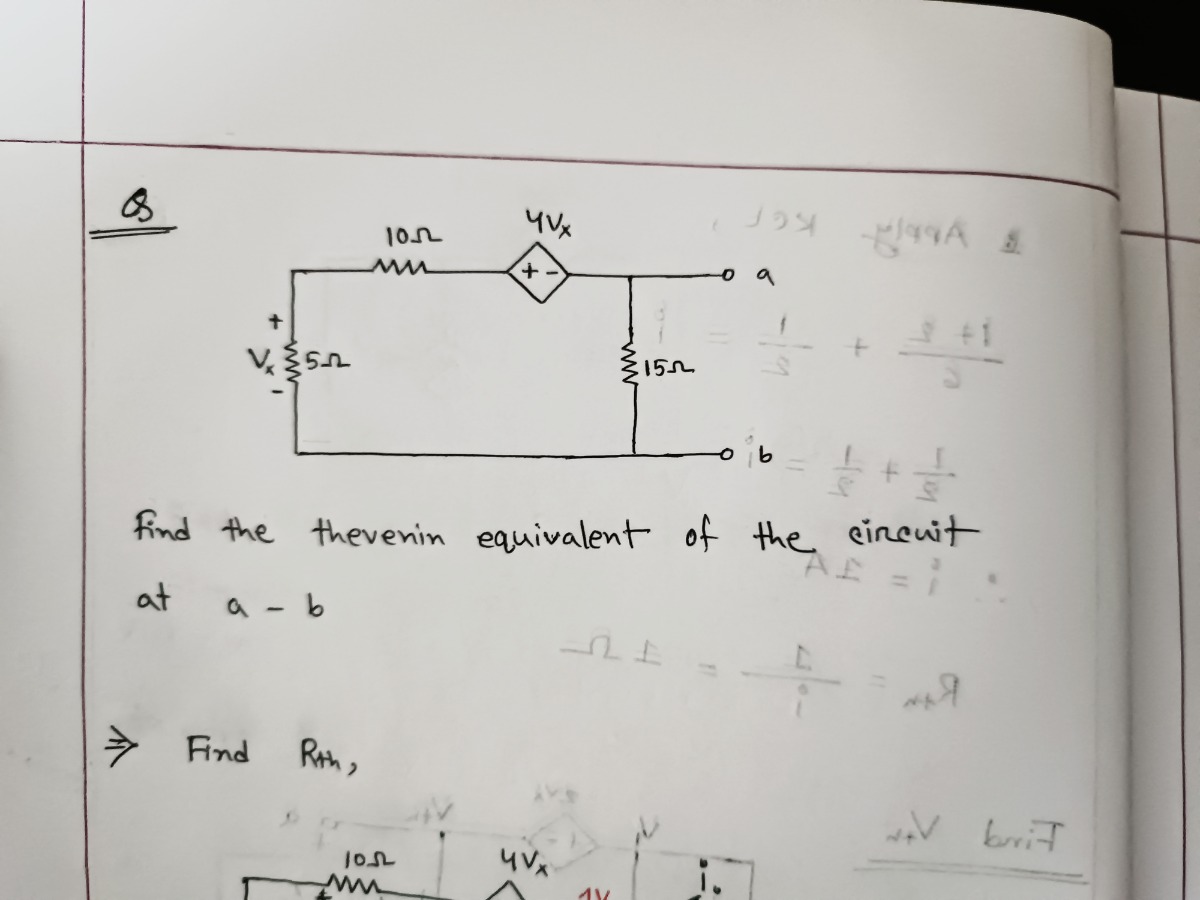 Q
10Ω
4Vx
+ -
a
+
Vx
5Ω
-
15Ω
b
Find the thevenin equivalent of the circuit
at a - b
⇒ Find Rth,
10Ω
4Vx
1V
i